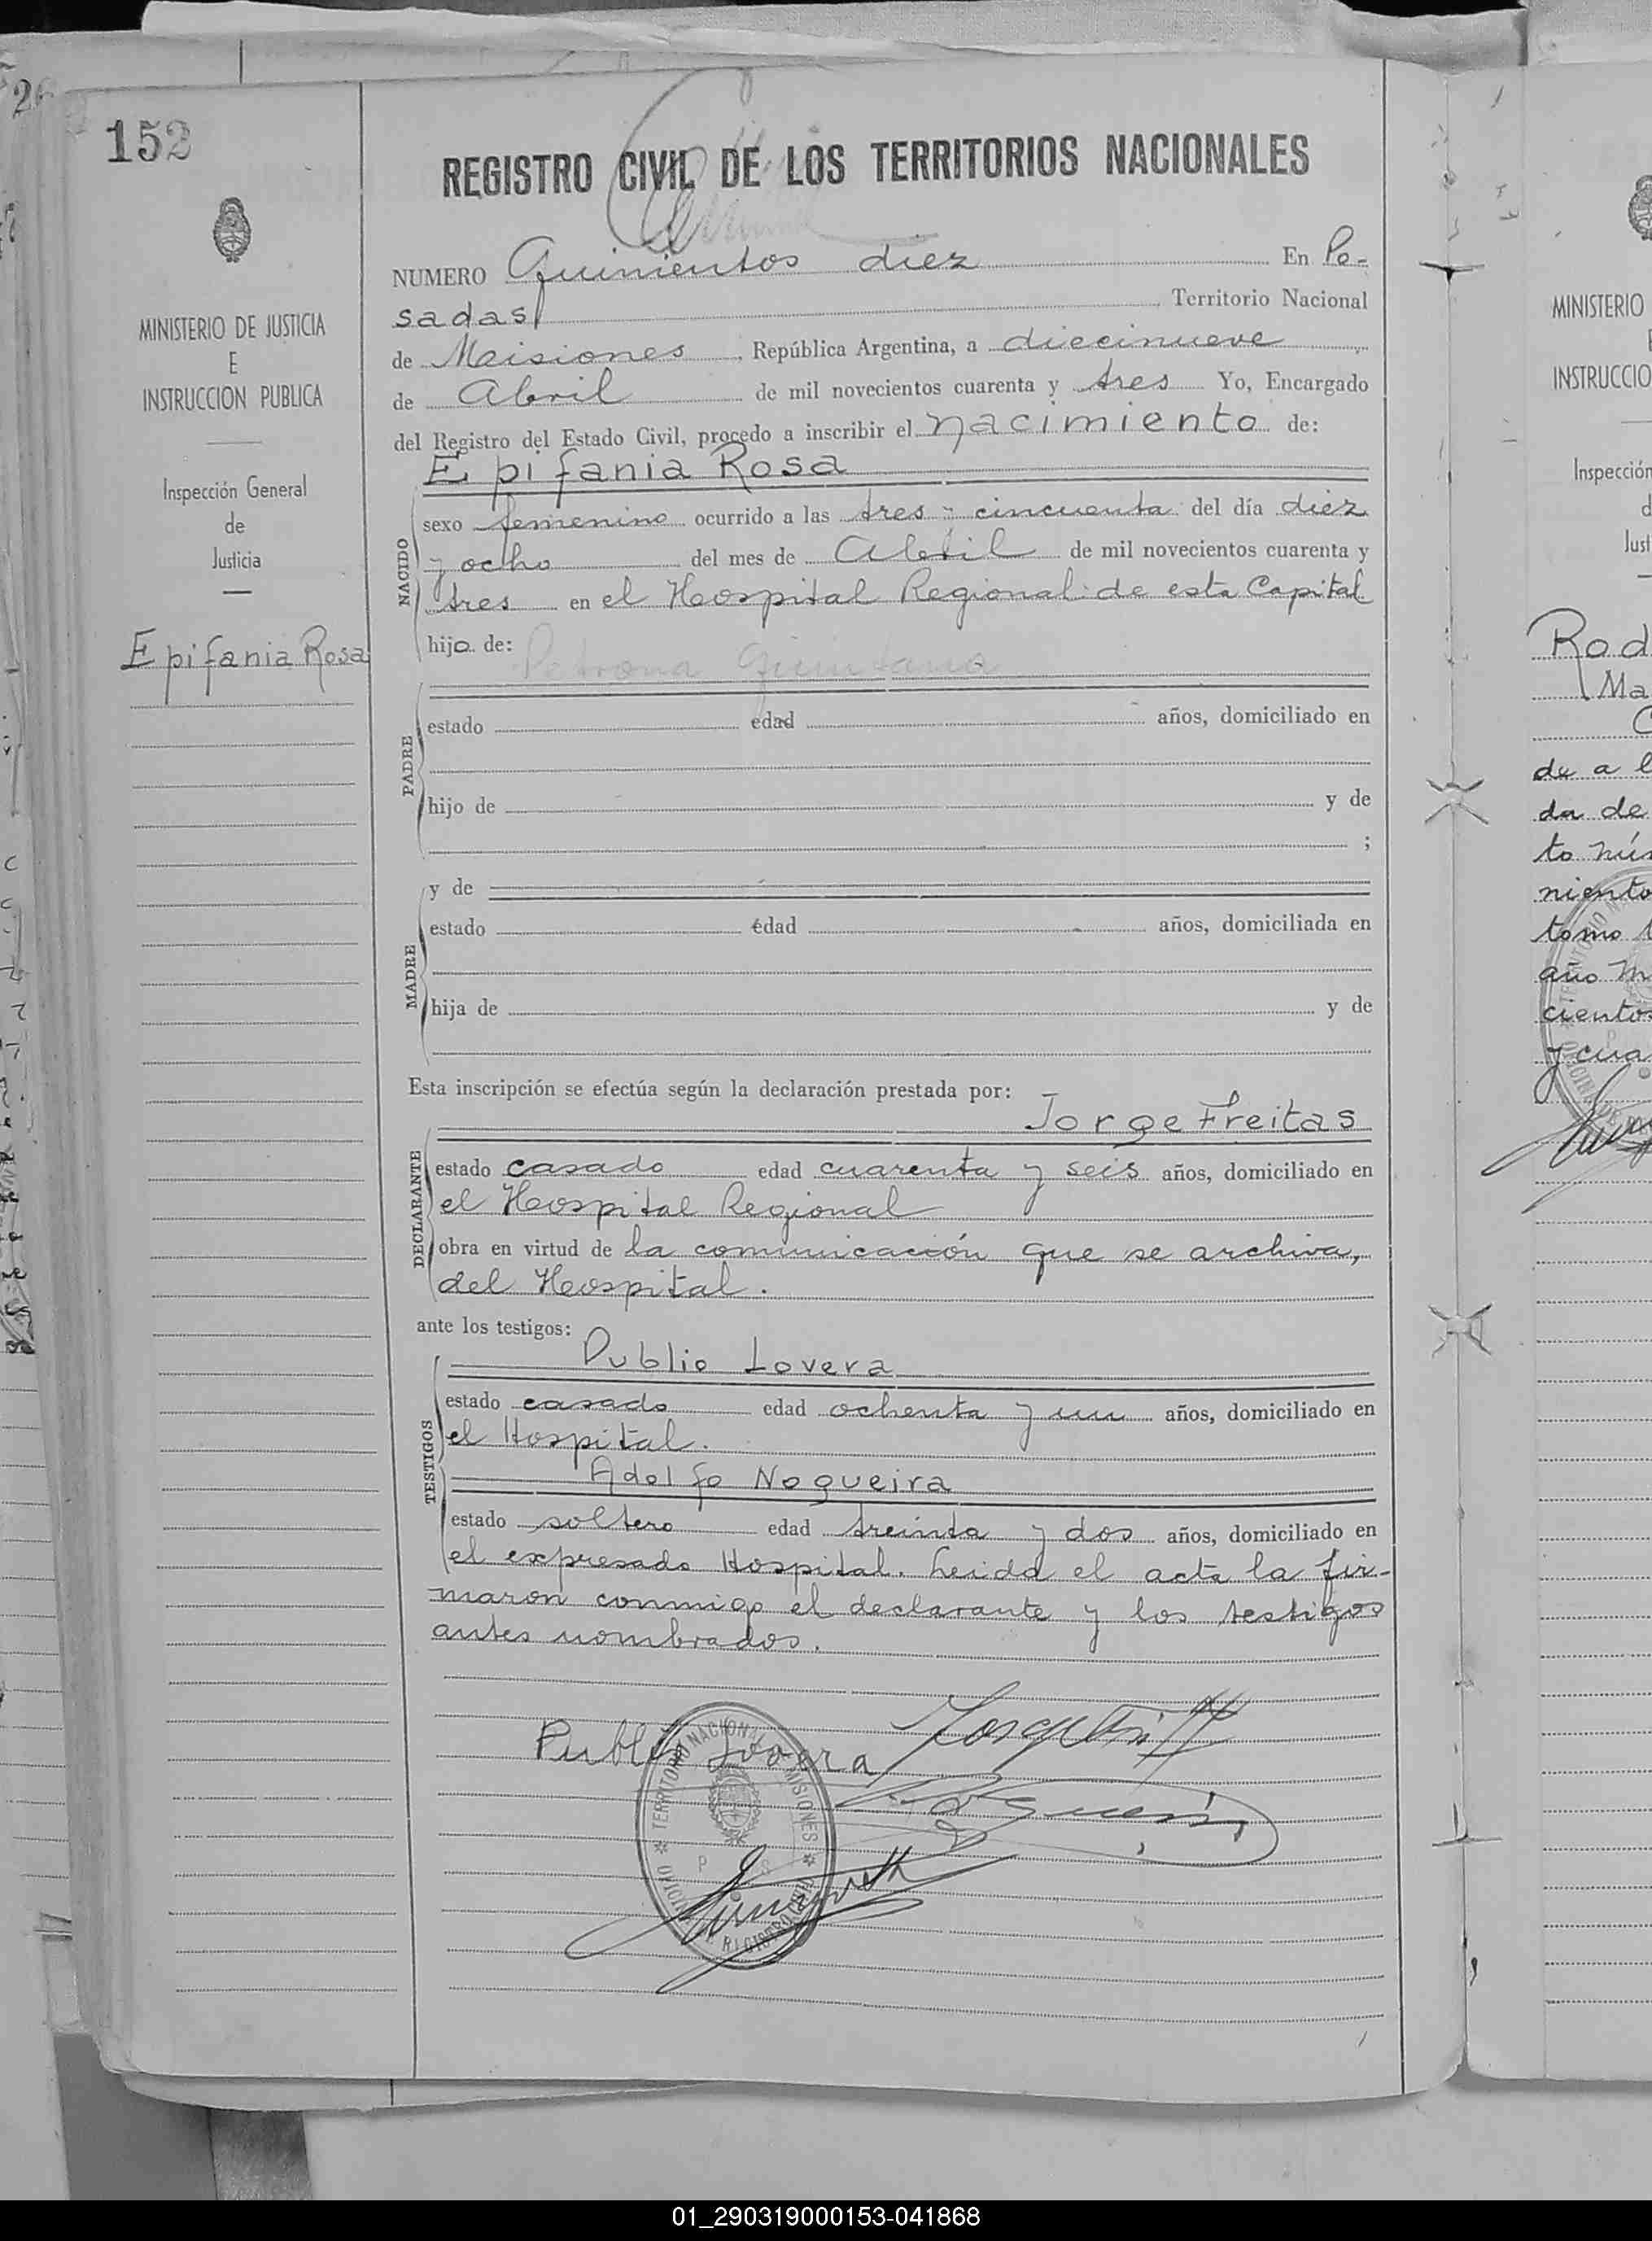 152
REGISTRO CIVIL DE LOS TERRITORIOS NACIONALES
MINISTERIO DE JUSTICIA
E
INSTRUCCION PUBLICA
Inspección General
de
Justicia
Epifania Rosa
NUMERO Quinientos diez En Po-
sadas Territorio Nacional
de Misiones, República Argentina, a diecinueve
de Abril de mil novecientos cuarenta y tres Yo, Encargado
del Registro del Estado Civil, procedo a inscribir el nacimiento de:
Epifania Rosa
NACIDO
sexo femenino ocurrido a las tres y cincuenta del día diez
y ocho del mes de Abril de mil novecientos cuarenta y
tres en el Hospital Regional de esta Capital
hija de:
Petrona Quintana
PADRE
estado edad años, domiciliado en
hijo de y de
;
MADRE
y de
estado edad años, domiciliada en
hija de y de
Esta inscripción se efectúa según la declaración prestada por:
Jorge Freitas
DECLARANTE
estado casado edad cuarenta y seis años, domiciliado en
el Hospital Regional
obra en virtud de la comunicación que se archiva,
del Hospital.
ante los testigos:
Publio Lovera
TESTIGOS
estado casado edad ochenta y un años, domiciliado en
el Hospital.
Adolfo Nogueira
estado soltero edad treinta y dos años, domiciliado en
el expresado Hospital. Leida el acta la fir-
maron conmigo el declarante y los testigos
antes nombrados.
Publio Lovera
TERRITORIO NACIONAL MISIONES
REGISTRO CIVIL
MINISTERIO
INSTRUCCIO
Inspección
d
Just
Rod
Ma
de a l
da de
to nú
niento
tomo
año m
ciento
y cua
01_290319000153-041868